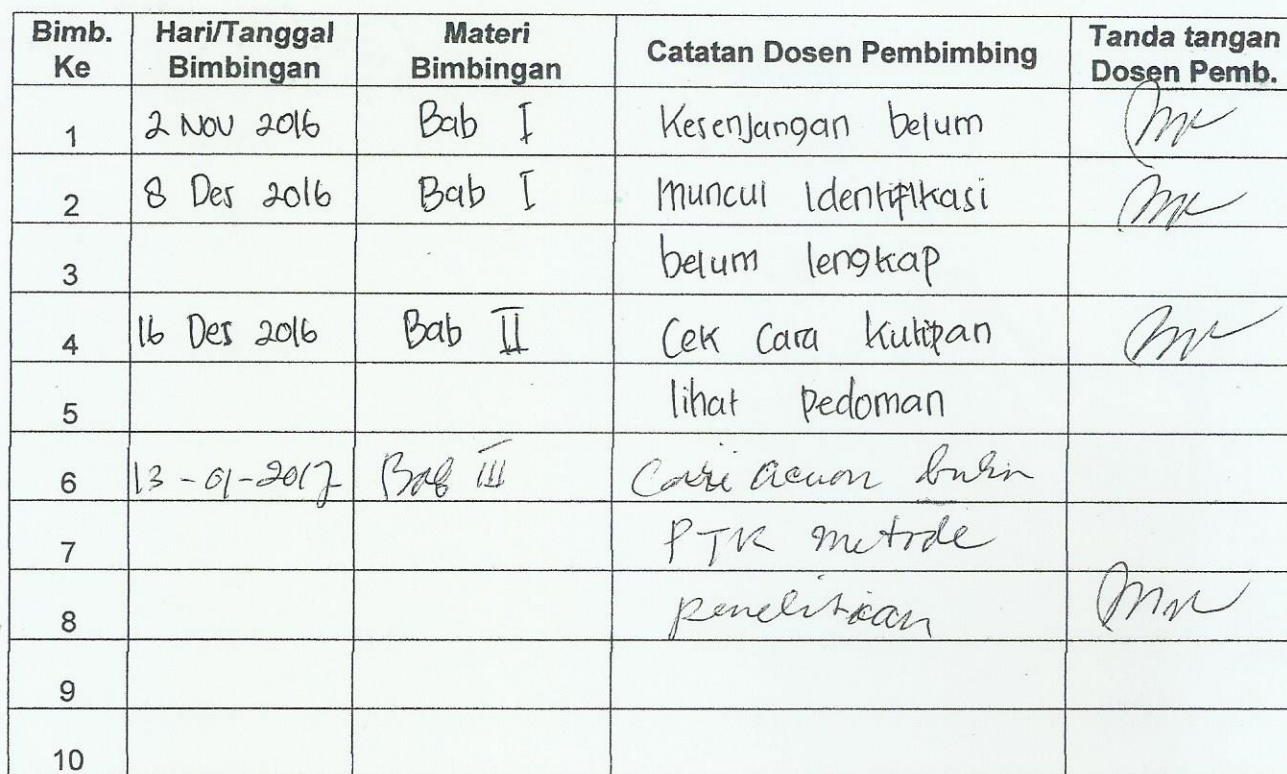 Bimb. Ke | Hari/Tanggal Bimbingan | Materi Bimbingan | Catatan Dosen Pembimbing | Tanda tangan Dosen Pemb.
1 | 2 Nov 2016 | Bab I | Kesenjangan belum
2 | 8 Des 2016 | Bab I | Muncul Identifikasi
3 | belum lengkap
4 | 16 Des 2016 | Bab II | Cek Cara Kutipan
5 | lihat pedoman
6 | 13-01-2017 | Bab III | Cari acuan buku
7 | PTK metode
8 | penelitian
9
10